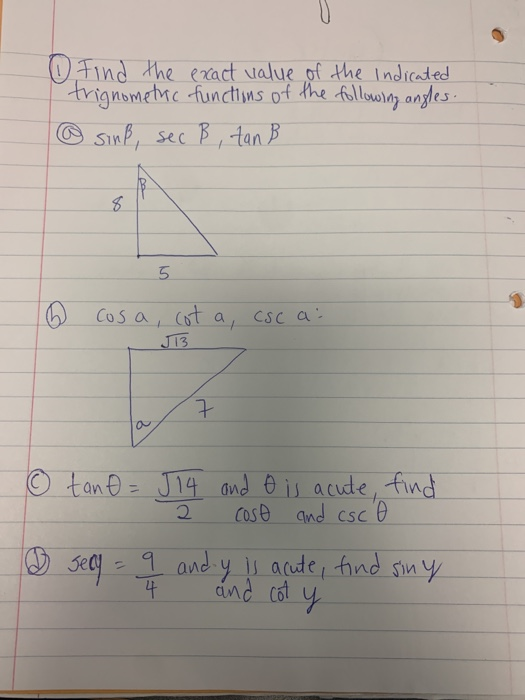 ① Find the exact value of the Indicated
trignometric functions of the following angles.
ⓐ sinβ, sec β, tan β
β
8
5
ⓑ cos a, cot a, csc a:
√13
7
a
ⓒ tanθ = √14/2 and θ is acute, find
cosθ and csc θ
ⓓ secy = 9/4 and y is acute, find sin y
and cot y